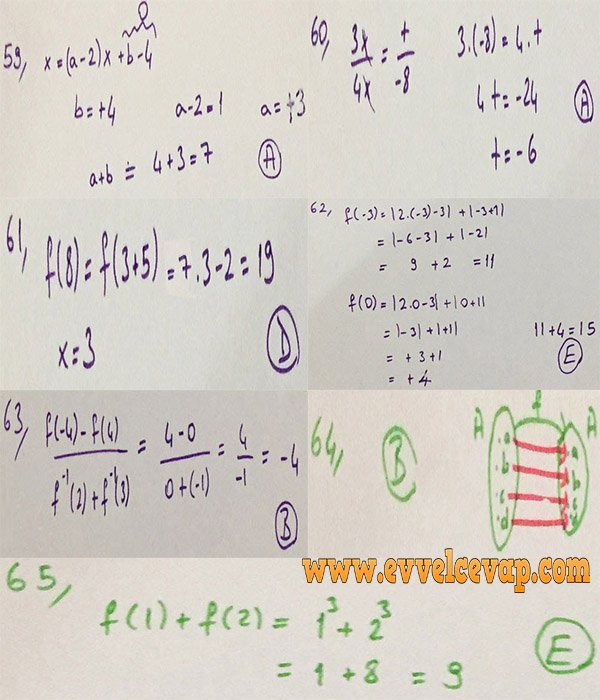 59, x=(a-2)x+b-4
0
b=+4 a-2=1 a=+3
a+b = 4+3=7 A
60, 3x/4x = t/-8 3.(-8)=4.t
4t=-24
t=-6
A
61, f(8)=f(3+5)=7.3-2=19
x=3 D
62, f(-3)=|2.(-3)-3|+|-3+1|
=|-6-3|+|-2|
= 9 +2 =11
f(0)=|2.0-3|+|0+1|
=|-3|+|+1|
= +3+1
= +4
11+4=15
E
63, f(-4)-f(4)/f⁻¹(2)+f⁻¹(3) = 4-0/0+(-1) = 4/-1 = -4
B
64, B
A f A
.a .a
.b .b
.c .c
.d .d
www.evvelcevap.com
65,
f(1)+f(2) = 1³+2³
= 1+8 = 9
E